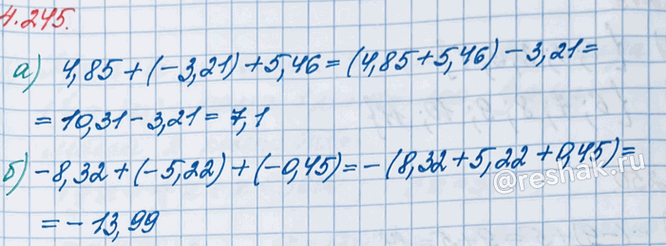 4.245.
а) 4,85 + (-3,21) + 5,46 = (4,85 + 5,46) - 3,21 =
= 10,31 - 3,21 = 7,1
б) -8,32 + (-5,22) + (-0,45) = - (8,32 + 5,22 + 0,45) =
@reshak.ru
= - 13,99